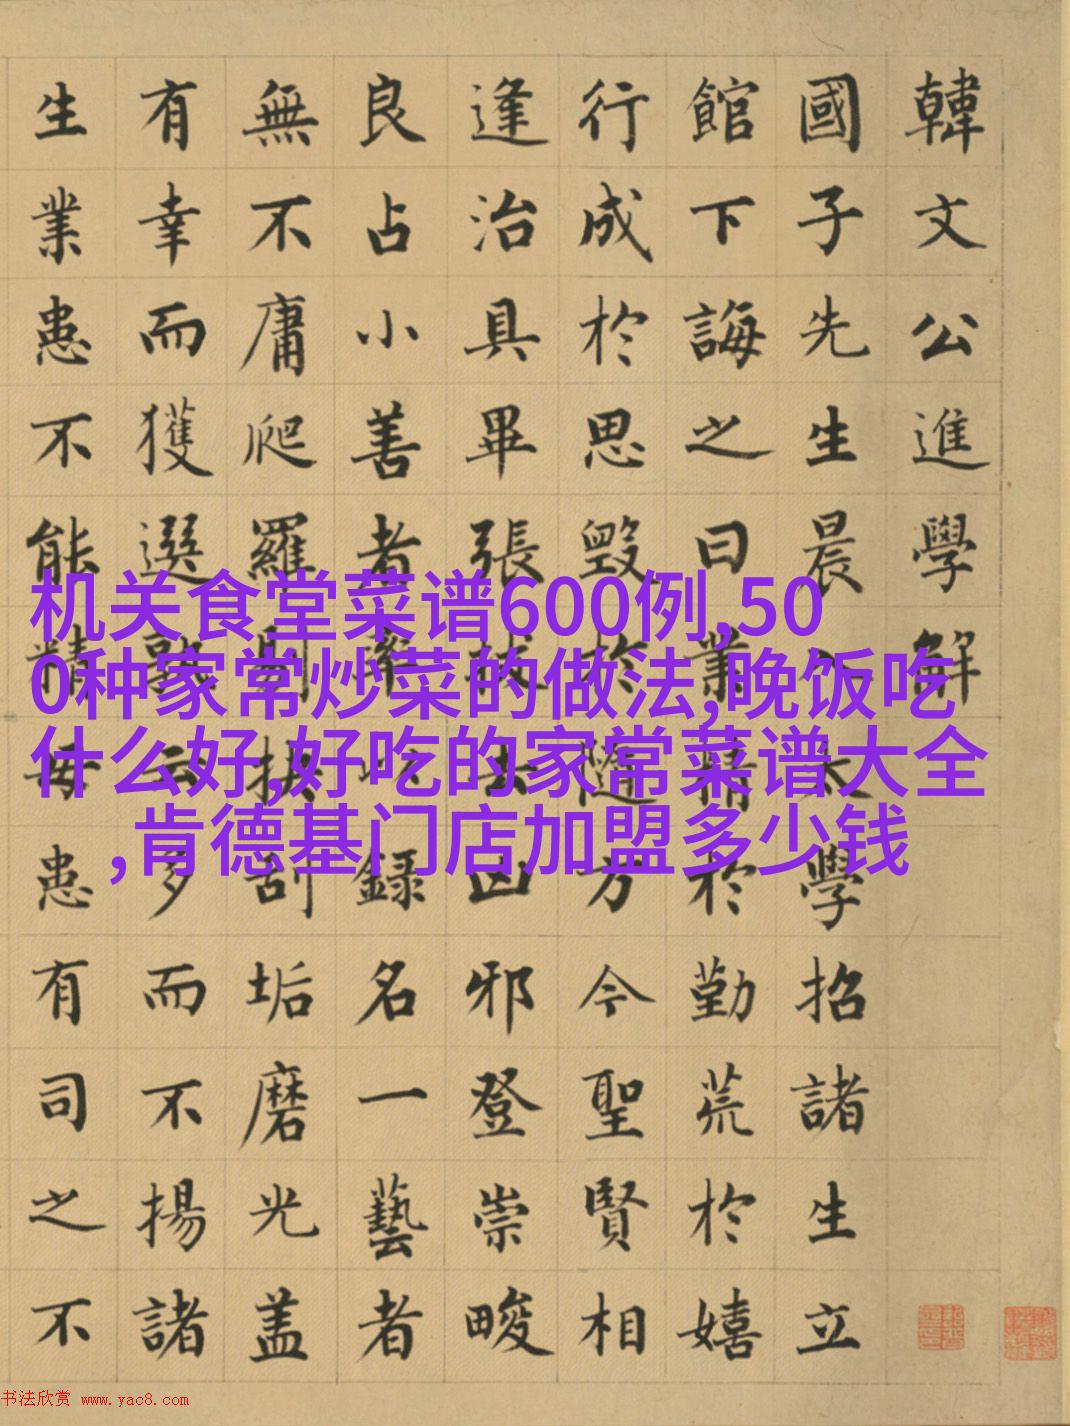 韓文公進學解
國子先生晨入太學招諸生立
館下誨之曰業精於勤荒於嬉
行成於思毀於隨方今聖賢相
逢治具畢張拔去凶邪登崇畯
良占小善者率以録名一藝者
無不庸爬羅剔抉刮垢磨光盖
有幸而獲選孰云多而不揚諸
生業患不能精毋患有司之不
机关食堂菜谱600例,50
0种家常炒菜的做法,晚饭吃
什么好,好吃的家常菜谱大全
,肯德基门店加盟多少钱
书法欣赏 www.yac8.com